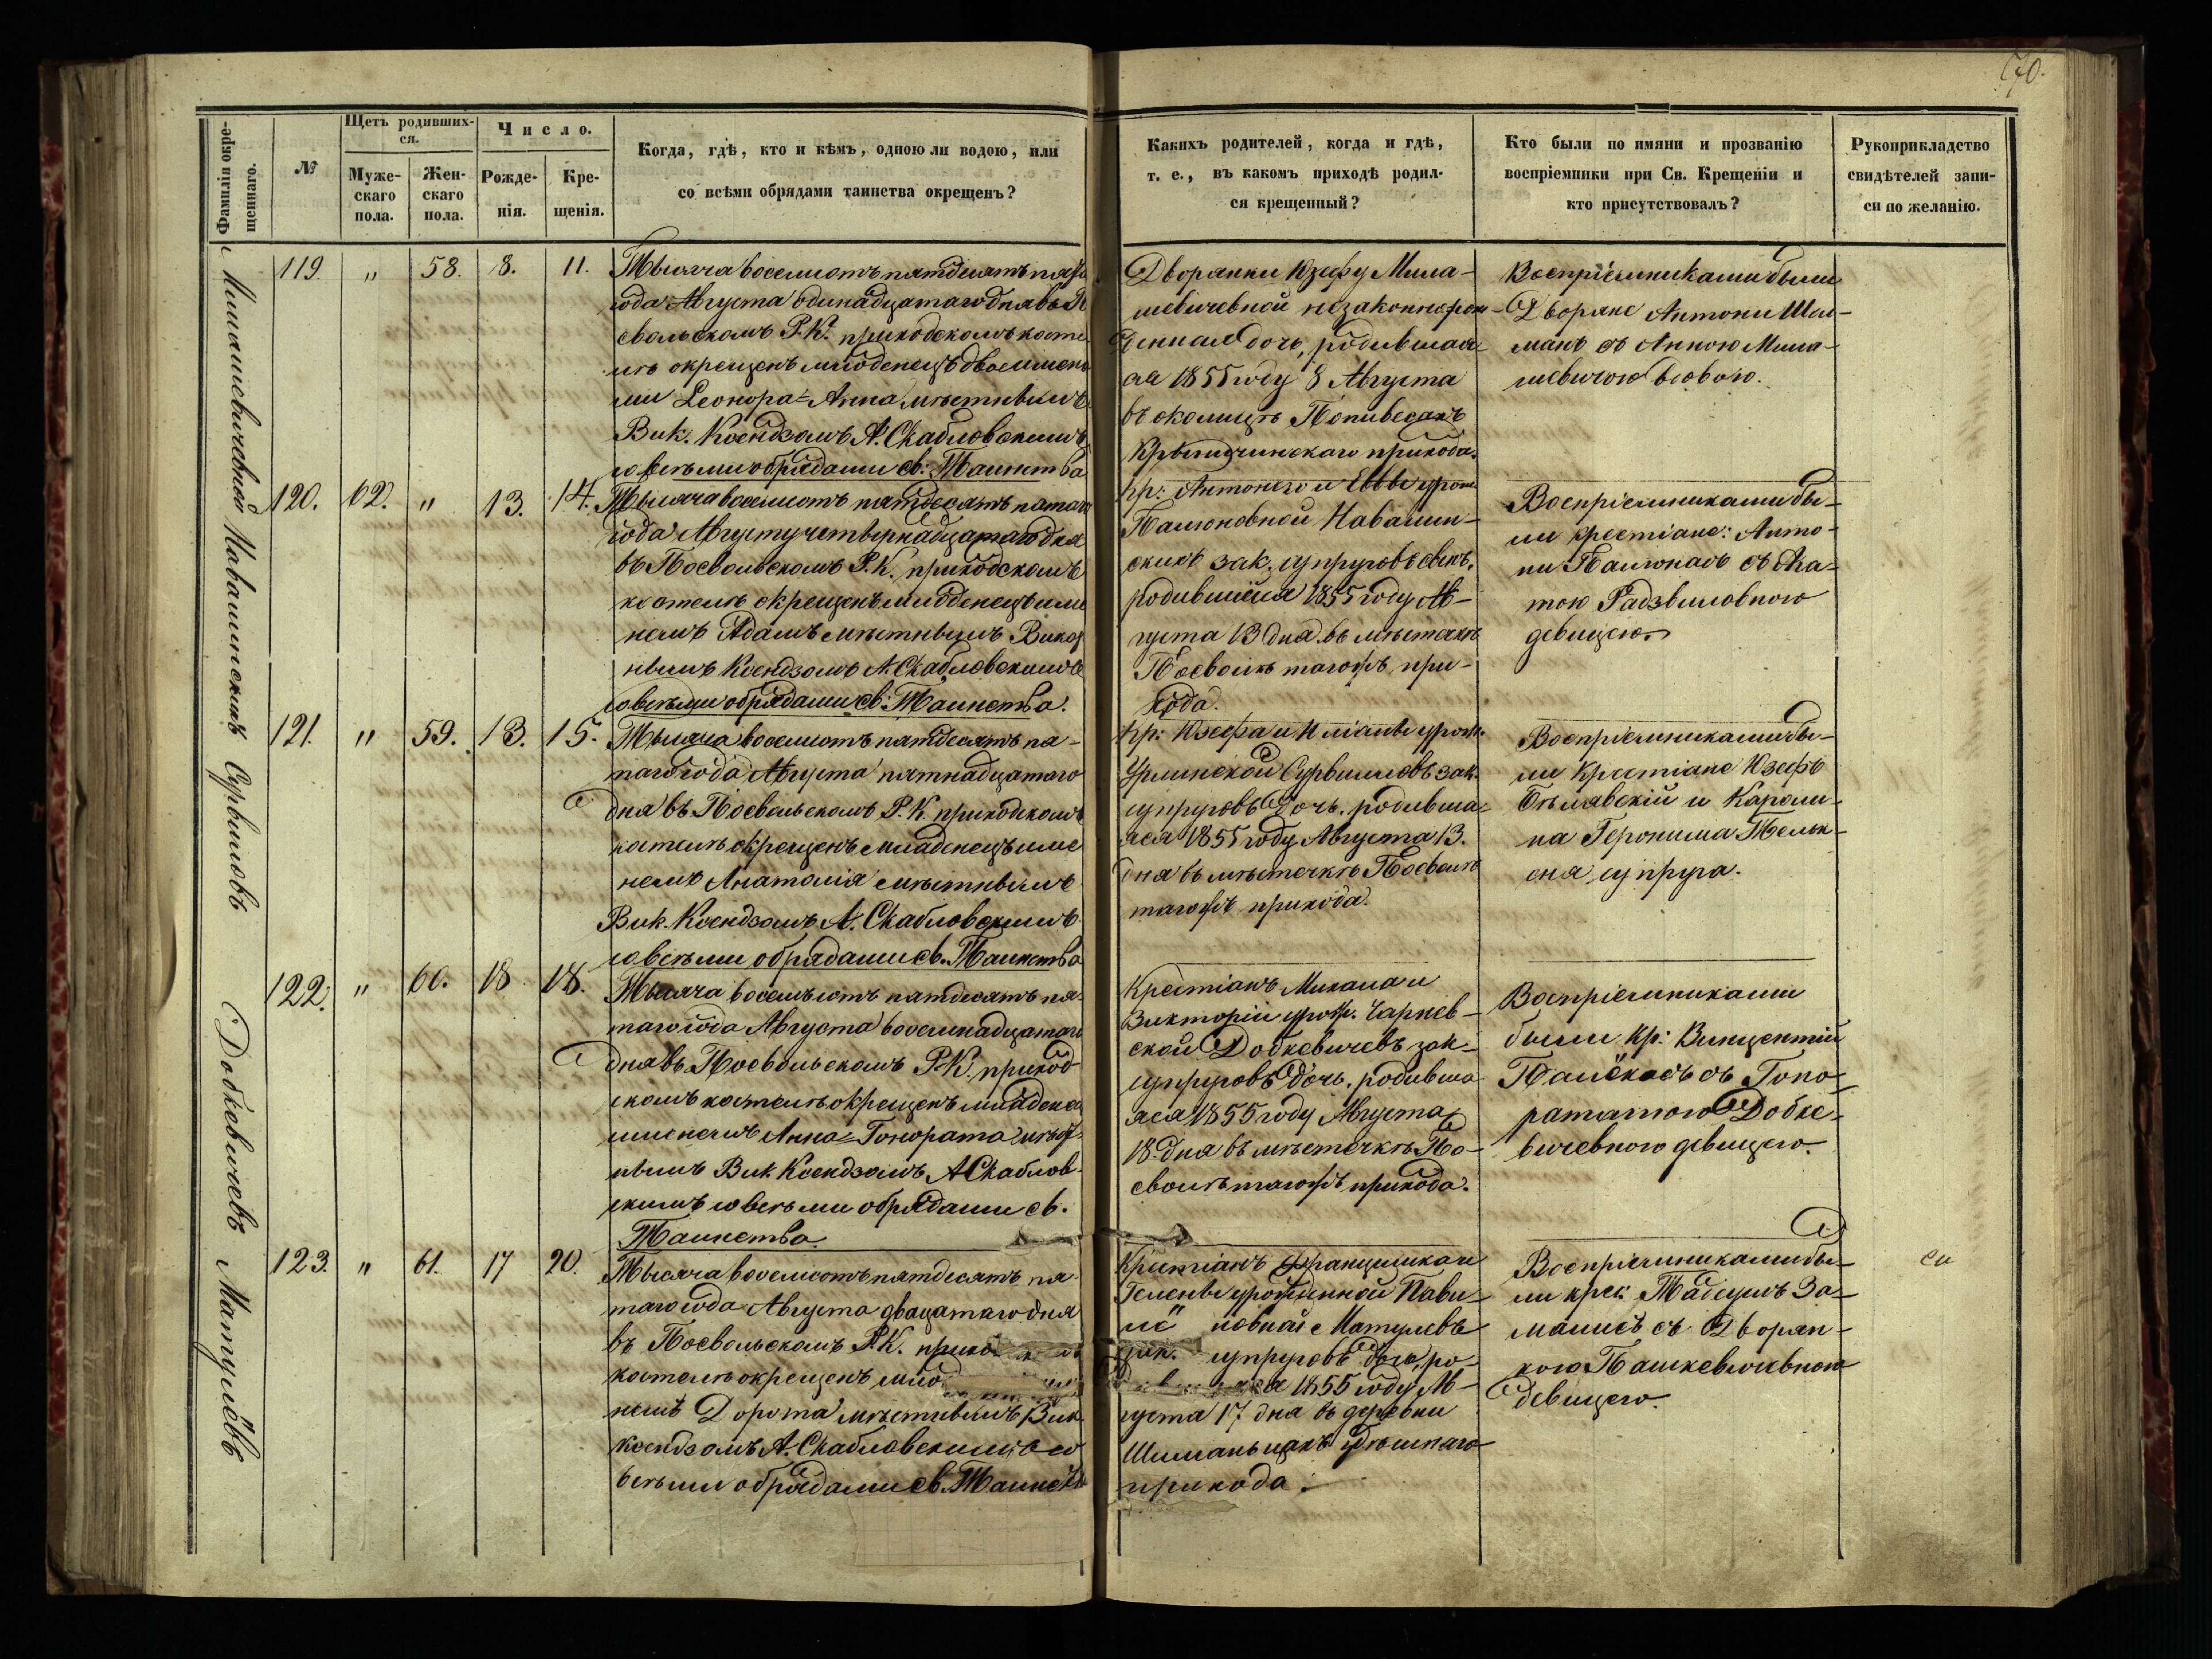 70.
Фамилія окре-
щеннаго.
№
Щетъ родивших-
ся.
Муже-
скаго
пола.
Жен-
скаго
пола.
Число.
Рожде-
нія.
Кре-
щенія.
Когда, гдѣ, кто и кѣмъ, одною ли водою, или
со всѣми обрядами таинства окрещенъ?
Какихъ родителей, когда и гдѣ,
т. е., въ какомъ приходѣ родил-
ся крещенный?
Кто были по имяни и прозванію
воспріемники при Св. Крещеніи и
кто присутствовалъ?
Рукоприкладство
свидѣтелей запи-
си по желанію.
119. " 58. 8. 11.
Тысяча восемсотъ пятдесятъ
года Августа одинадцатаго дня въ
свольскомъ Р. К. приходскомъ
окрещенъ младенецъ
Леонора-Анна мѣстнымъ
Вик. Ксендзомъ А. Скабловскимъ
со всѣми обрядами св: Таинства
Дворянки Юзефу Мила-
шевичевной
дочь, родившая-
ся 1855 году 8 Августа
въ околицѣ
прихода.
Воспріемниками были
Дворяне Антони
съ Анною Мила-
шевичою вдовою.
120. 62. " 13. 14.
Тысяча восемсотъ пятдесятъ пятаго
года Августу четвернадцатаго дня
въ Посвольскомъ Р. К. приходскомъ
костелѣ окрещенъ младенецъ име
немъ Адамъ мѣстнымъ
нымъ Ксендзомъ А. Скабловскимъ
со всѣми обрядами св: Таинства.
кр: Антонего и Еввы урож
Паліоновной
скихъ зак. супруговъ сынъ,
родившійся 1855 году Ав-
густа 13 дня въ мѣстечкѣ
Посволѣ тогожъ при-
хода.
Воспріемниками бы-
ли крестіане: Анто-
ни Паліонасъ съ Ага-
тою Радзвиловною
девицею.
121. " 59. 13. 15.
Тысяча восемсотъ пятдесятъ пя-
таго года Августа пятнадцатаго
дня въ Посвольскомъ Р. К. приходскомъ
костелѣ окрещенъ младенецъ име
немъ Анатолія мѣстнымъ
Вик. Ксендзомъ А. Скабловскимъ
со всѣми обрядами св. Таинства
кр: Юзефа и урож.
зак.
супруговъ дочь, родивша-
яся 1855 году Августа 13.
дня въ мѣстечкѣ Посволѣ
тогожъ прихода.
Воспріемниками бы-
ли Крестіане Юзефъ
Бѣлявскій и Кароли-
на Геронима
супруга.
122. " 60. 18 18.
Тысяча восемьсотъ пятдесятъ пя-
таго года Августа восемнадцатаго
дня въ Посвольскомъ Р. К. приход-
скомъ костелѣ окрещенъ младенец
именемъ Анна-Гонората
нымъ Вик Ксендзомъ А Скаблов-
скимъ со всѣми обрядами св.
Таинства
Крестіанъ Михала и
Викторіи урож. Чарнев-
ской Добкевичевъ зак-
супруговъ дочь, родивша
яся 1855 году Августа
18 дня въ мѣстечкѣ По-
сволѣ тогожъ прихода.
Воспріемниками
были кр: Винцентій
съ Гоно
ратою Добке-
вичевною девицею.
123. " 61. 17 20.
Тысяча восемсотъ пятдесятъ пя-
таго года Августа двацатаго дня
въ Посвольскомъ Р. К.
костелѣ окрещенъ
немъ Дорота мѣстнымъ Вик
Ксендзомъ А. Скабловскимъ со
всѣми обрядами св. Таинств
Крестіанъ Францишка и
Гелены урожденной Пави-
Матулевъ
супруговъ дочь, ро-
1855 году Ав-
густа 17 дня въ деревни
здѣшняго
прихода.
Воспріемниками бы-
ли крес: Тадеушъ За-
съ Дворян-
кою Пашкевичевною
девицею.
Милашевичевной
Сурвиловъ
Добкевичевъ
Матулёвъ